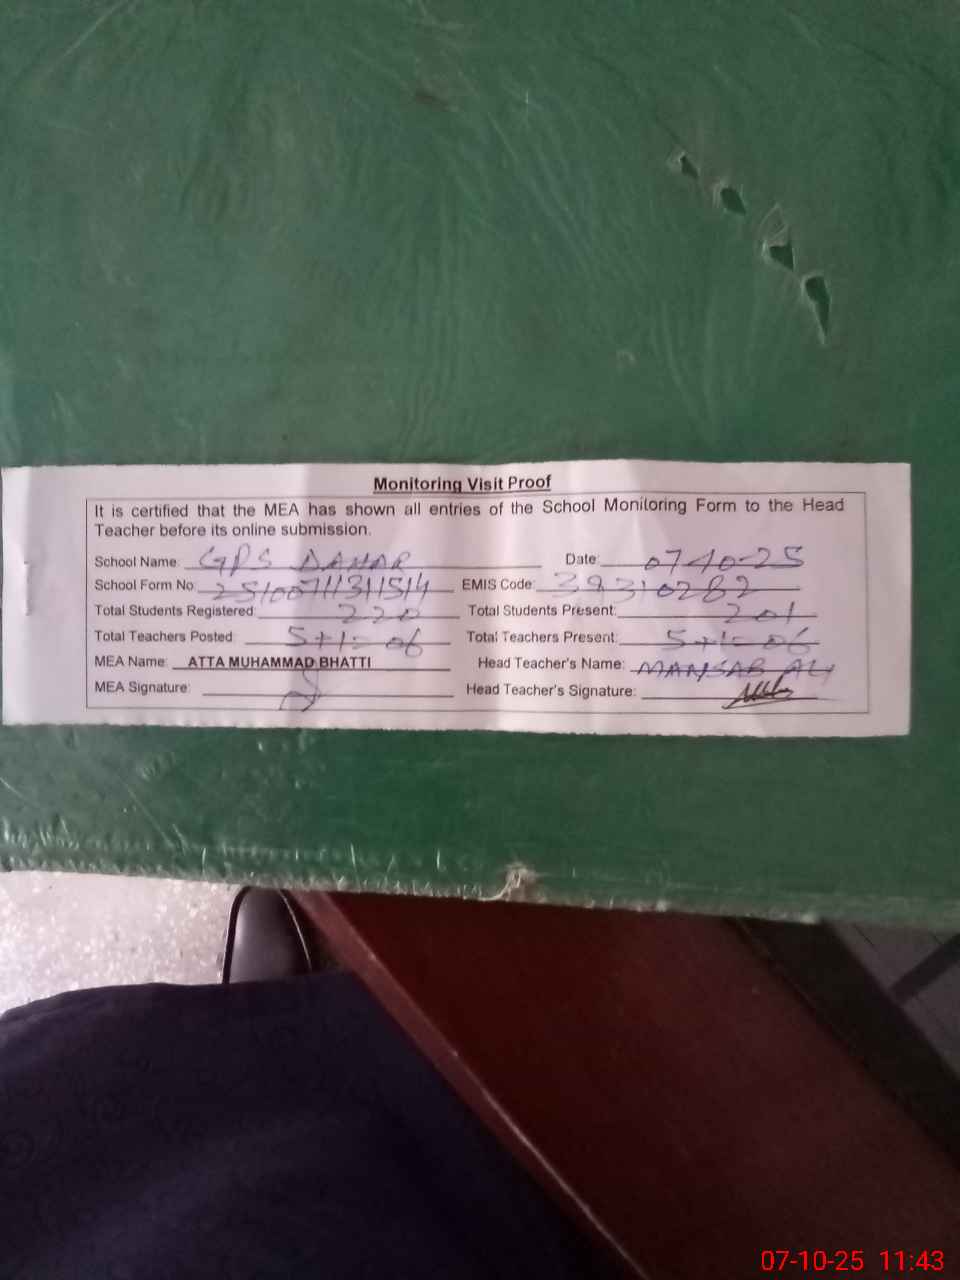 Monitoring Visit Proof
It is certified that the MEA has shown all entries of the School Monitoring Form to the Head
Teacher before its online submission.
School Name: GPS DAHAR Date: 07-10-25
School Form No: 25100711311514 EMIS Code: 39310282
Total Students Registered: 220 Total Students Present: 201
Total Teachers Posted: 5+1= 06 Total Teachers Present: 5+1= 06
MEA Name: ATTA MUHAMMAD BHATTI Head Teacher's Name: MANSAB ALI
MEA Signature: Head Teacher's Signature:
07-10-25 11:43